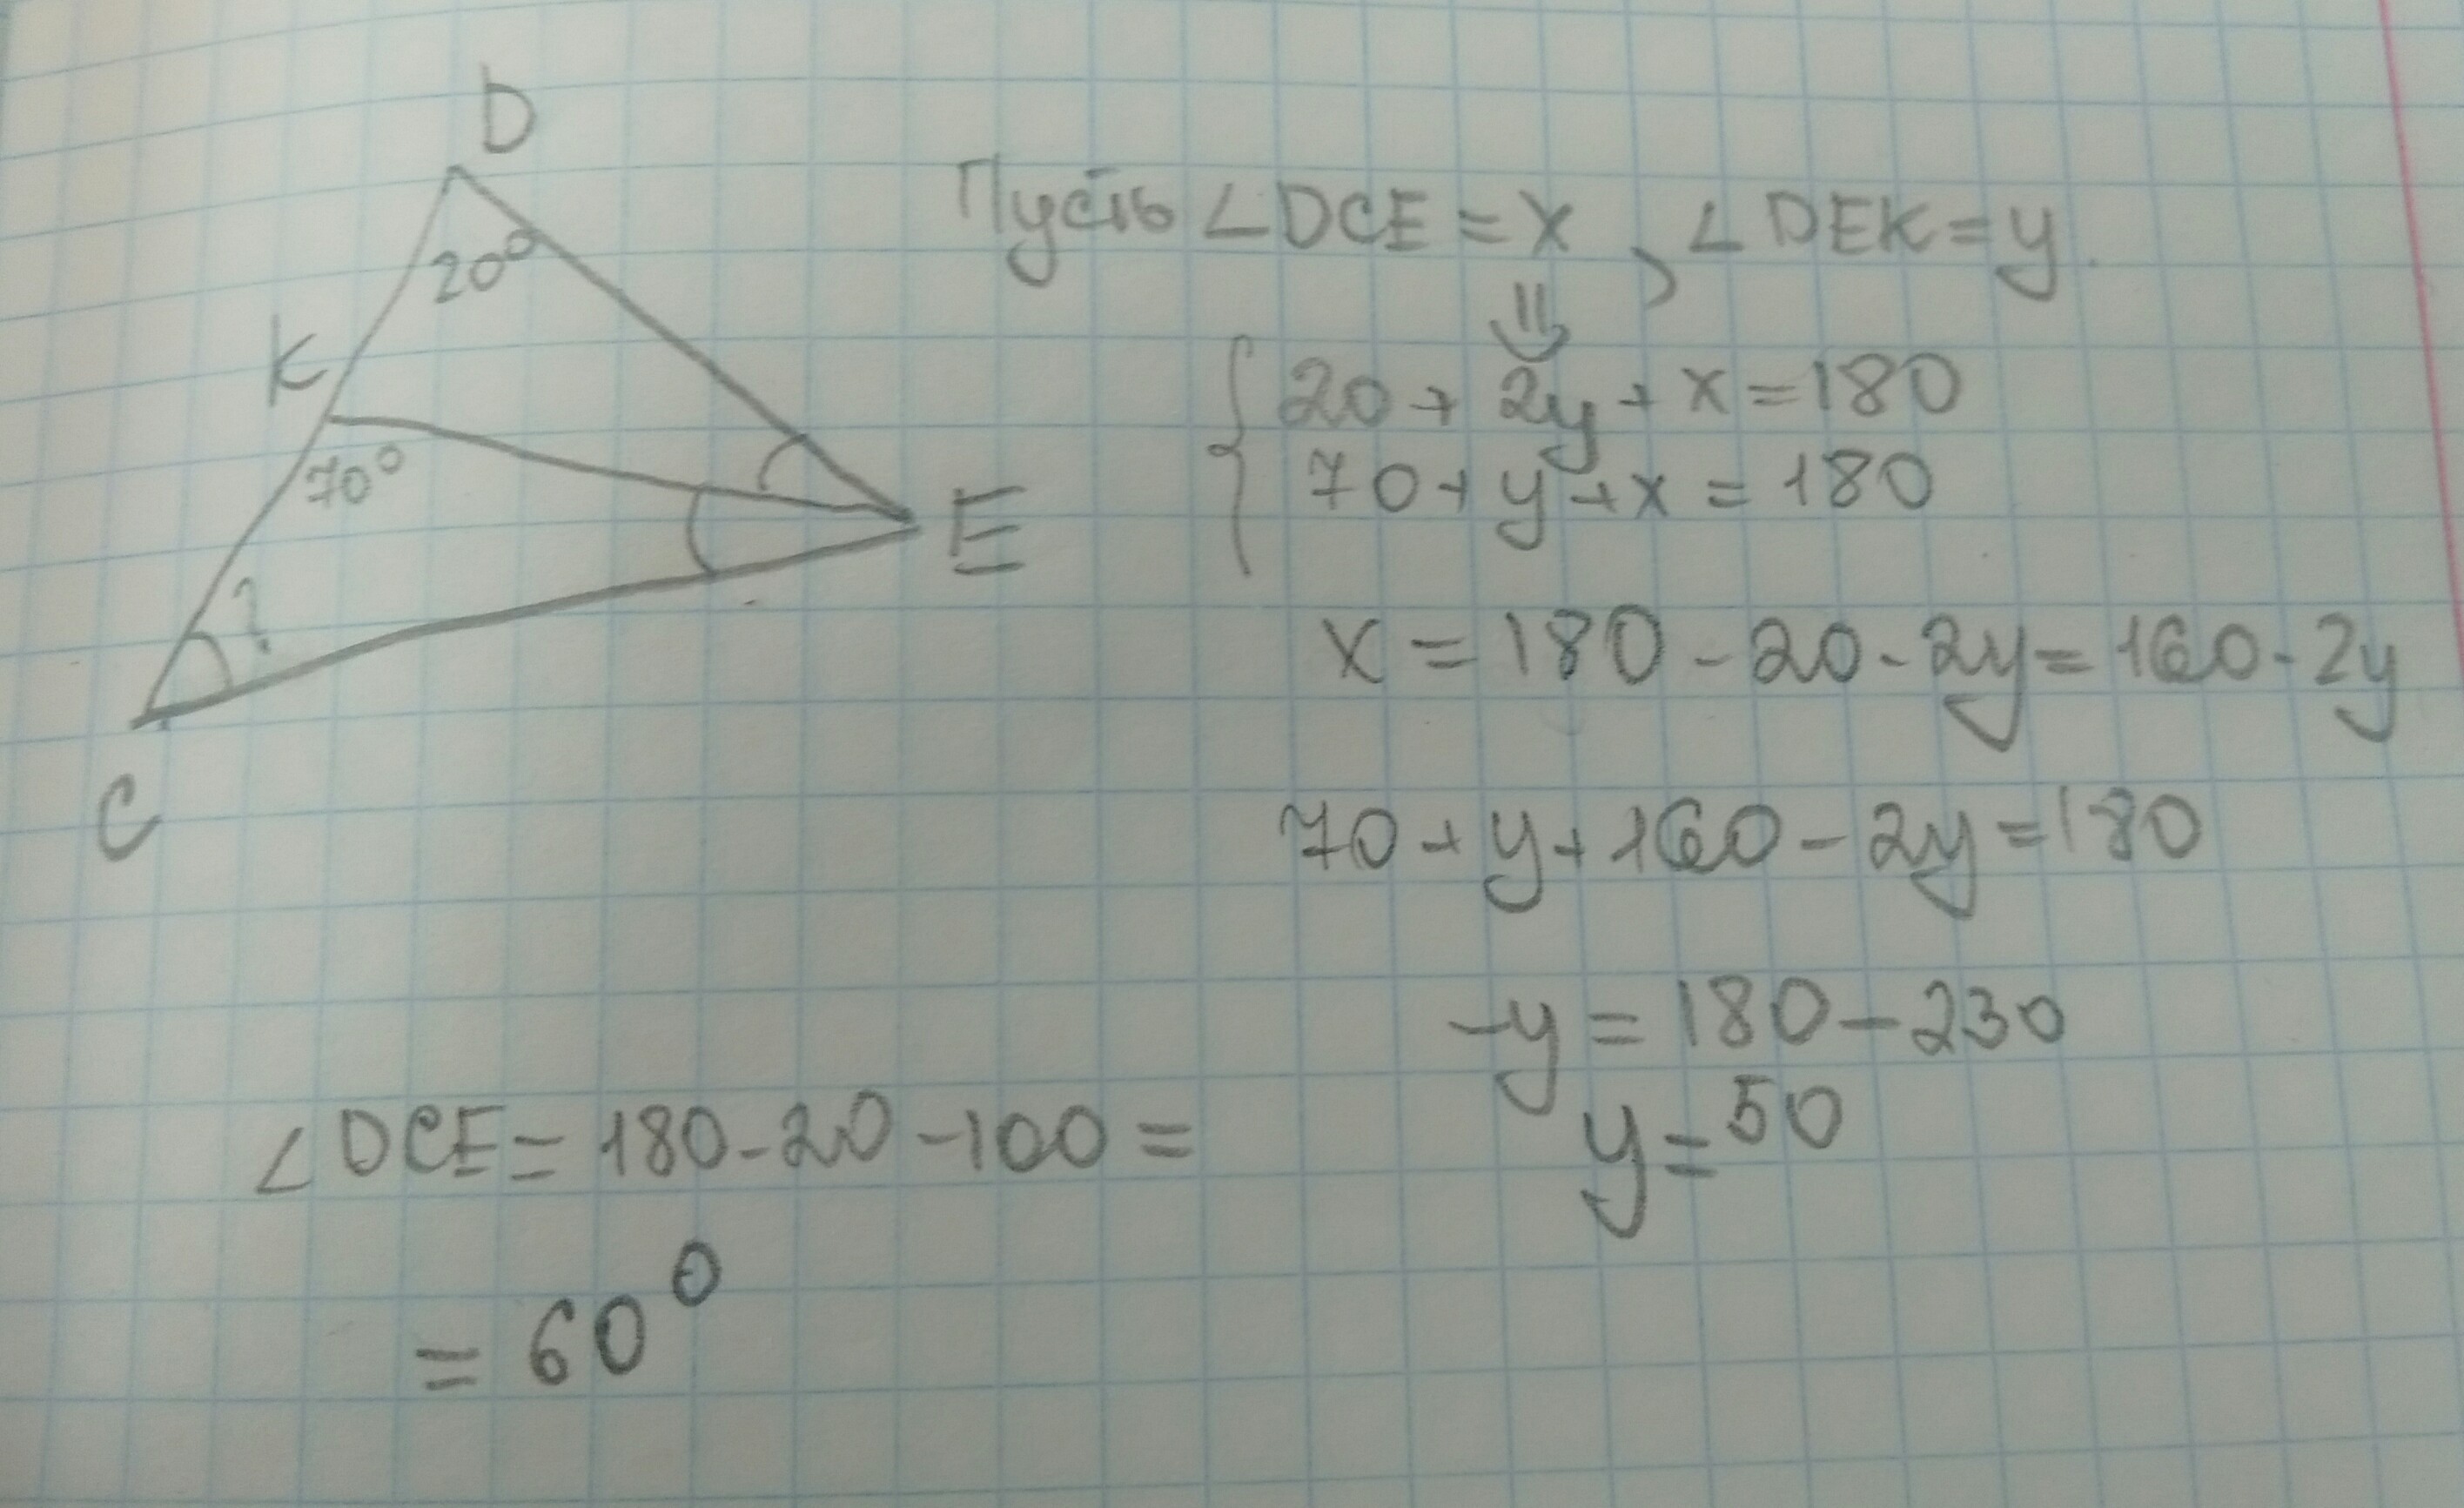 D
20°
K
70°
E
?
C
Пусть ∠DCE = x, ∠DEK = y.
⇓
{ 20 + 2y + x = 180
70 + y + x = 180
x = 180 - 20 - 2y = 160 - 2y
70 + y + 160 - 2y = 180
-y = 180 - 230
y = 50
∠DCE = 180 - 20 - 100 =
= 60°